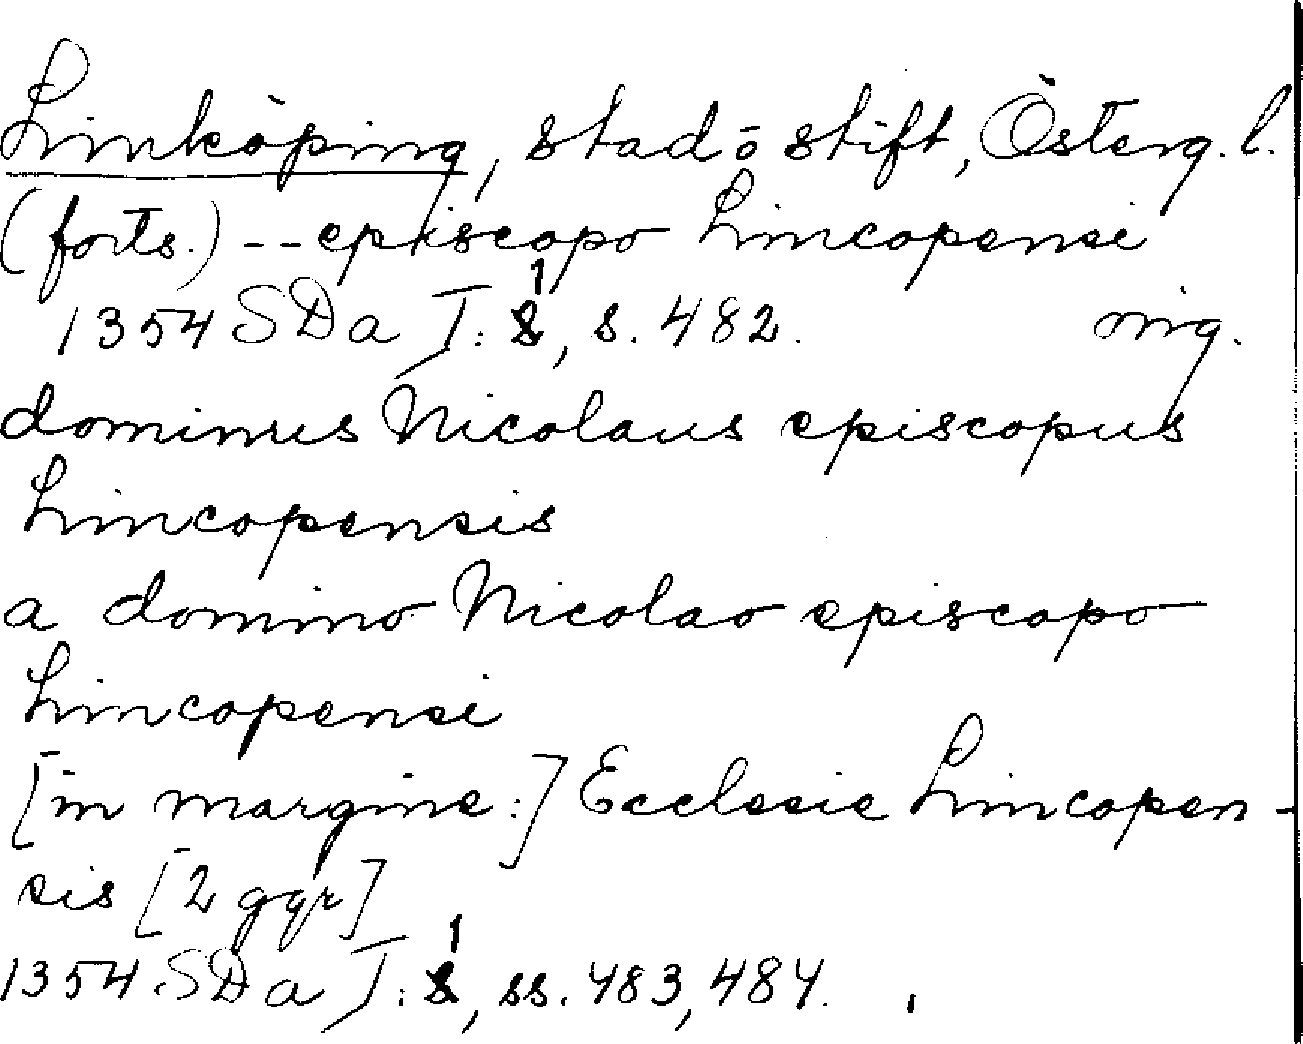 Linköping, stad o stift, Österg. l.
(forts.) -- episcopo Lincopensi
1354 SDa I: 1, s. 482. ing.
dominus Nicolaus episcopus
Lincopensis
a domino Nicolao episcopo
Lincopensi
[in margine:] Ecclesie Lincopen-
sis [2 ggr]
1354 SDa I: 1, ss. 483, 484.